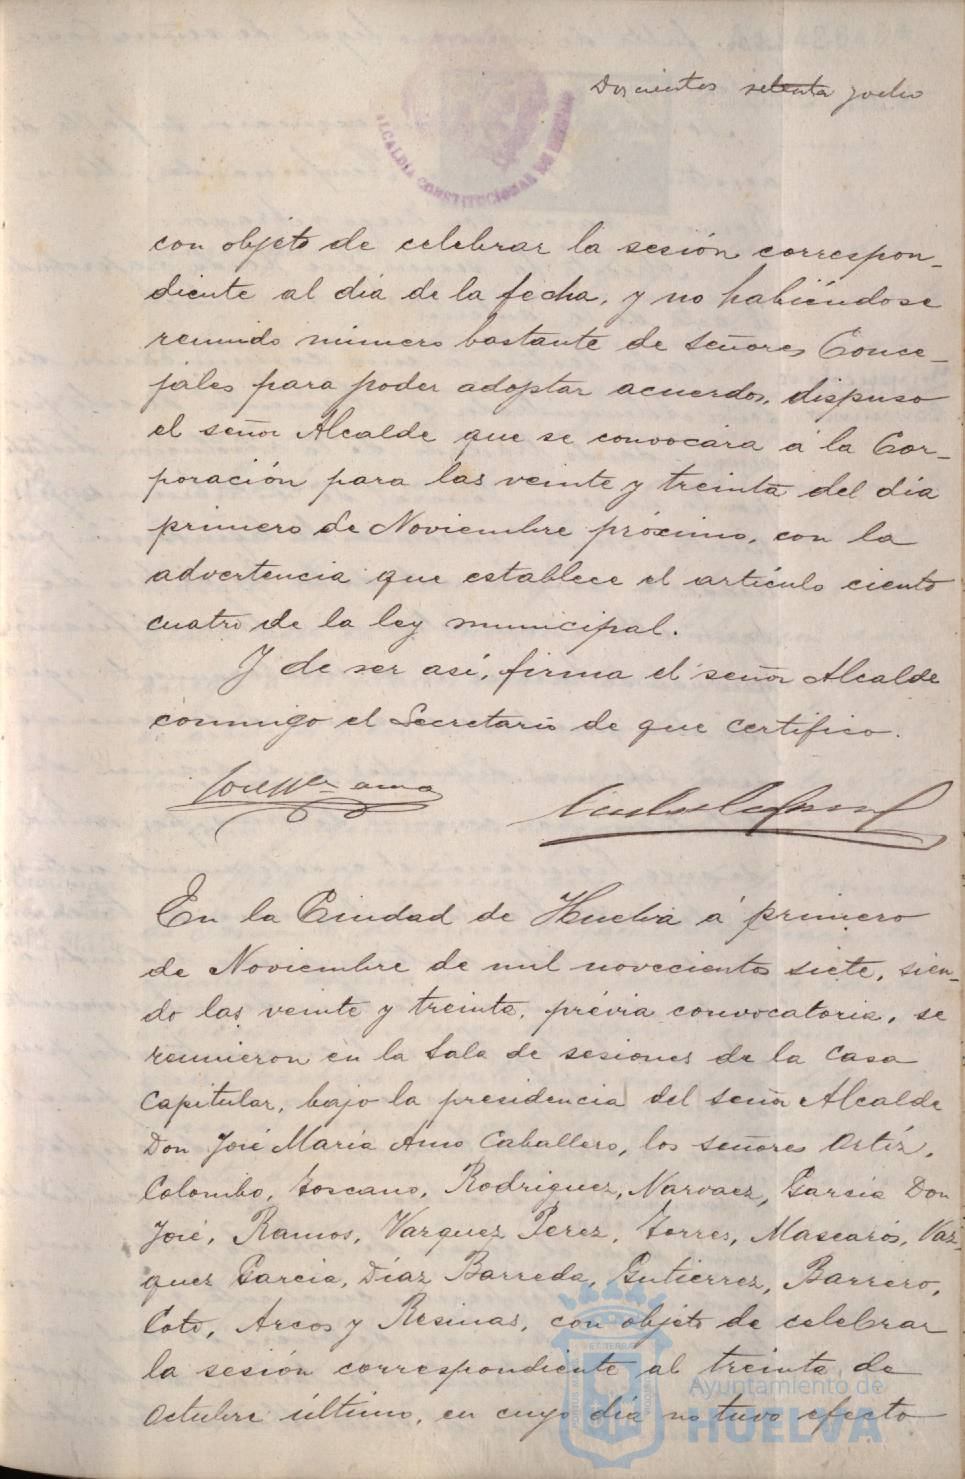 Doscientos setenta y ocho
ALCALDIA CONSTITUCIONAL DE HUELVA
con objeto de celebrar la sesión correspon-
diente al día de la fecha, y no habiéndose
reunido número bastante de señores Conce-
jales para poder adoptar acuerdos, dispuso
el señor Alcalde que se convocára á la Cor-
poración para las veinte y treinta del día
primero de Noviembre próximo, con la
advertencia que establece el artículo ciento
cuatro de la ley municipal.
Y de ser así, firma el señor Alcalde
conmigo el Secretario de que certifico.
En la Ciudad de Huelva á primero
de Noviembre de mil novecientos siete, sien-
do las veinte y treinta, prévia convocatoria, se
reunieron en la Sala de sesiones de la Casa
Capitular, bajo la presidencia del señor Alcalde
Don José María Amo Caballero, los señores Ortíz,
Colombo, Toscano, Rodriguez, Narvaez, García Don
José, Ramos, Vazquez Perez, Torres, Mascarós, Vaz-
quez Garcia, Díaz Barreda, Gutierrez, Barrero,
Coto, Arcos y Resinas, con objeto de celebrar
la sesión correspondiente al treinta de
Octubre último, en cuyo día no tuvo efecto
Ayuntamiento de
HUELVA